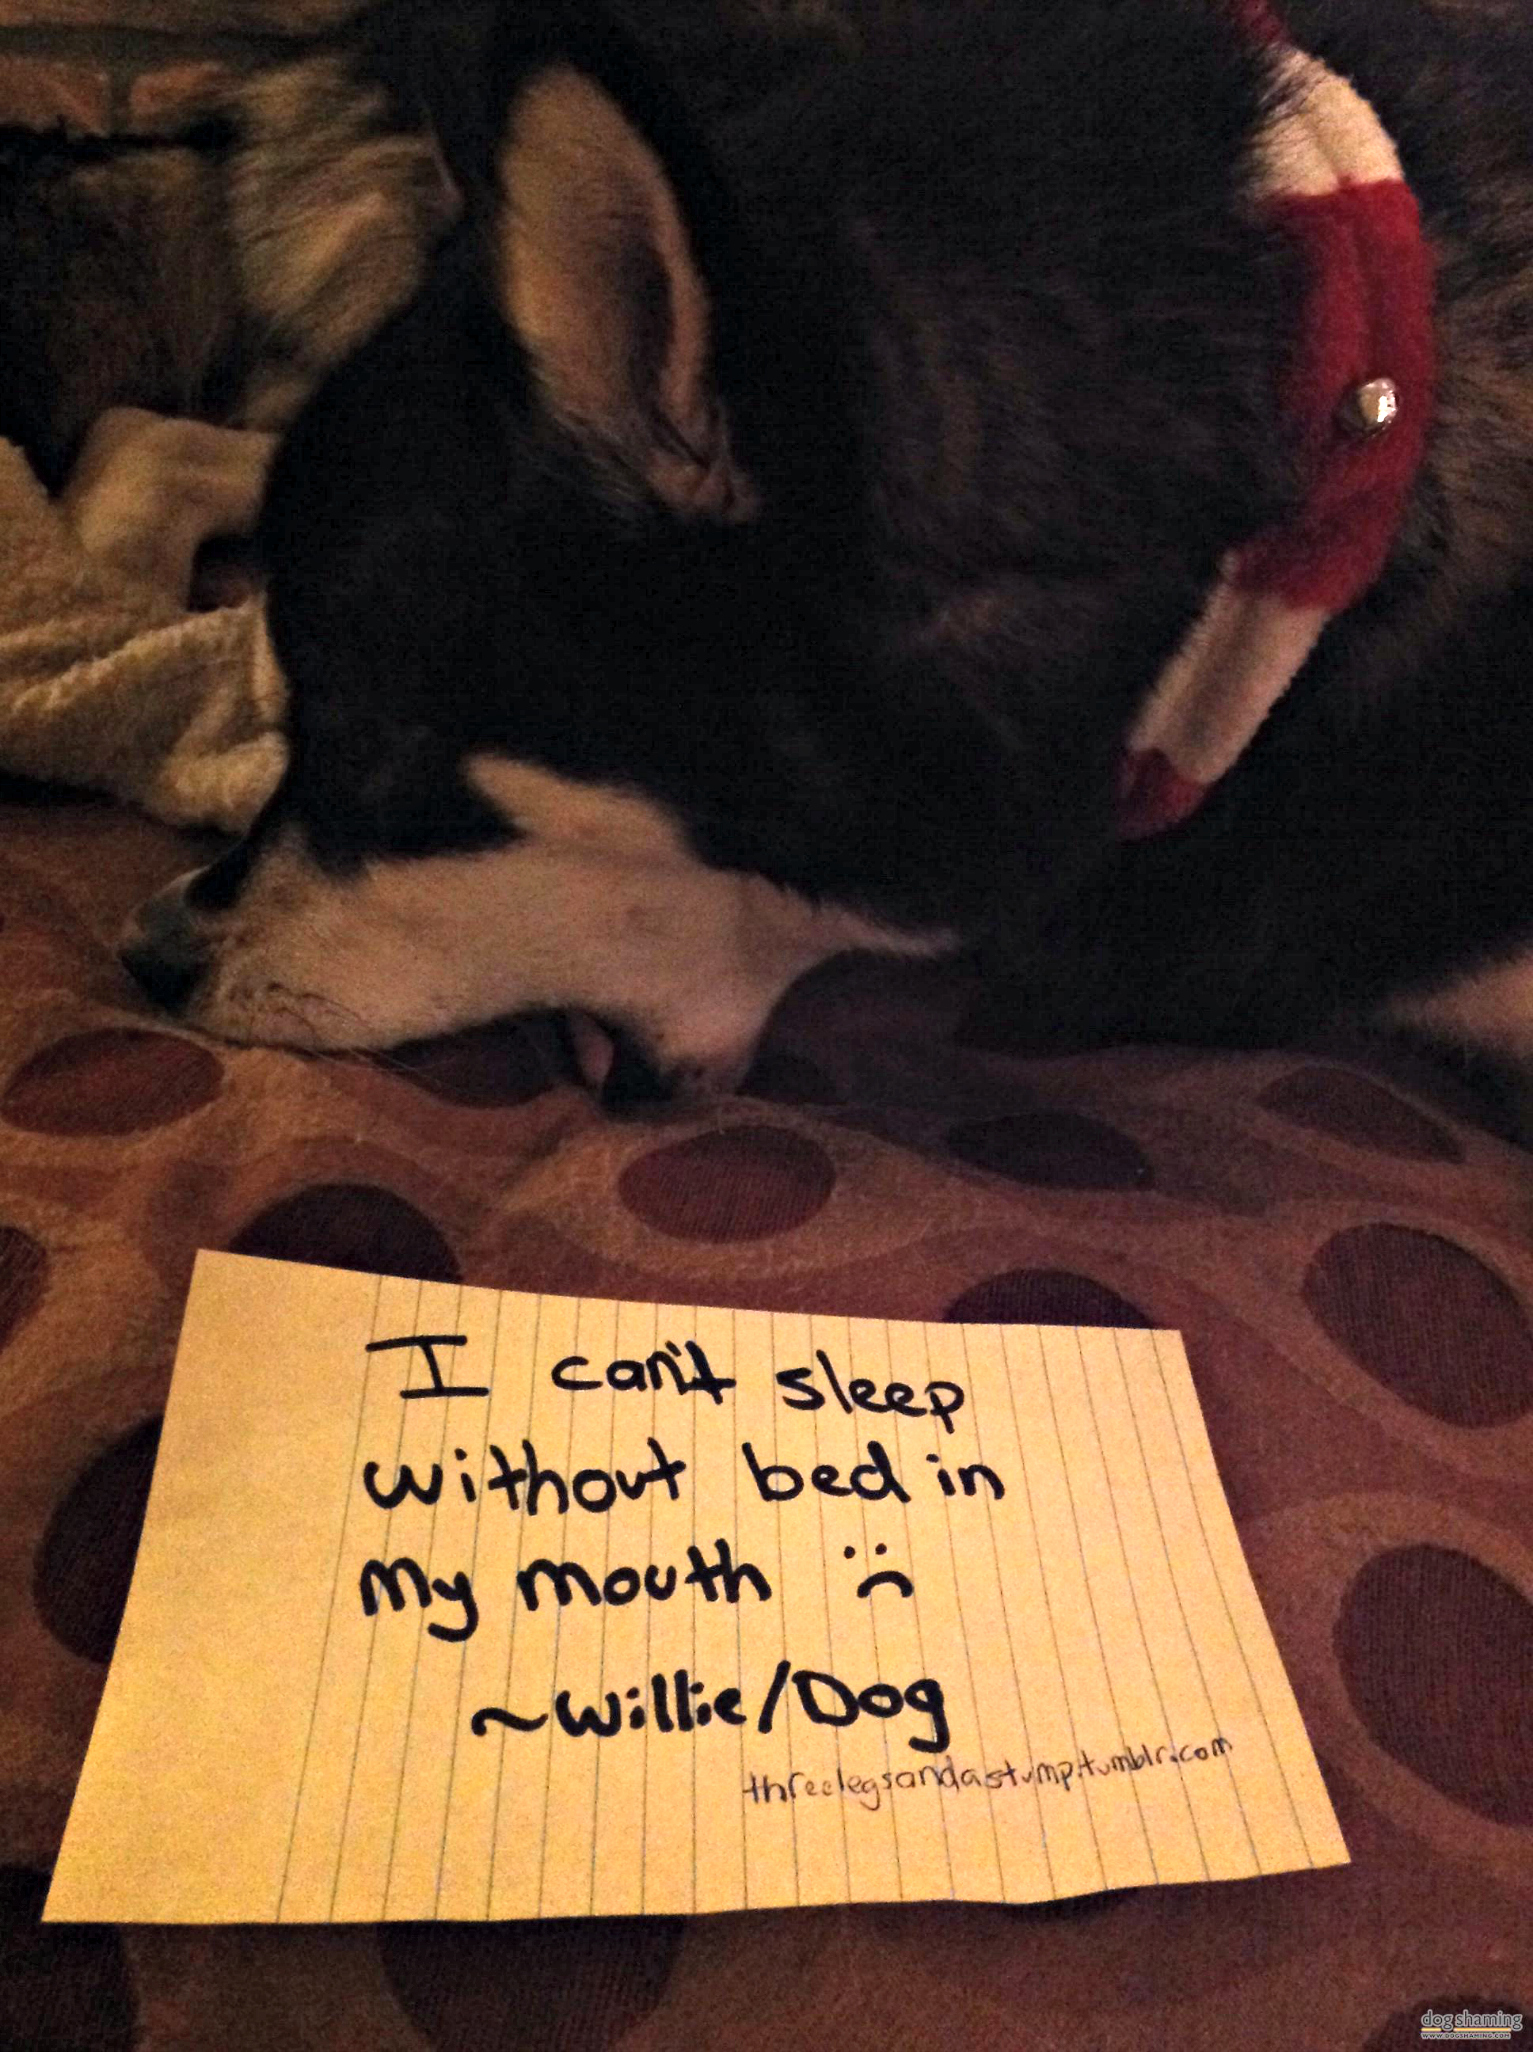 I can't sleep
without bed in
my mouth :(
~Willie/Dog
threelegsandastump.tumblr.com
dog shaming
WWW.DOGSHAMING.COM